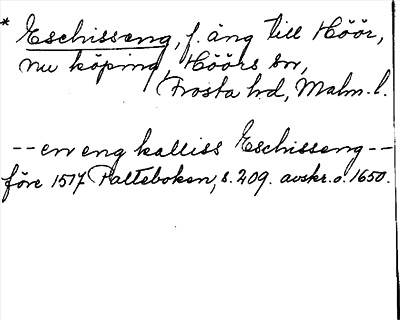 * Eschisseng, f. äng till Höör,
nu köping, Höörs sn,
Frosta hd, Malm. l.
-- en eng kalliss Eschisseng --
före 1517 Palteboken, s. 209. avskr. o. 1650.